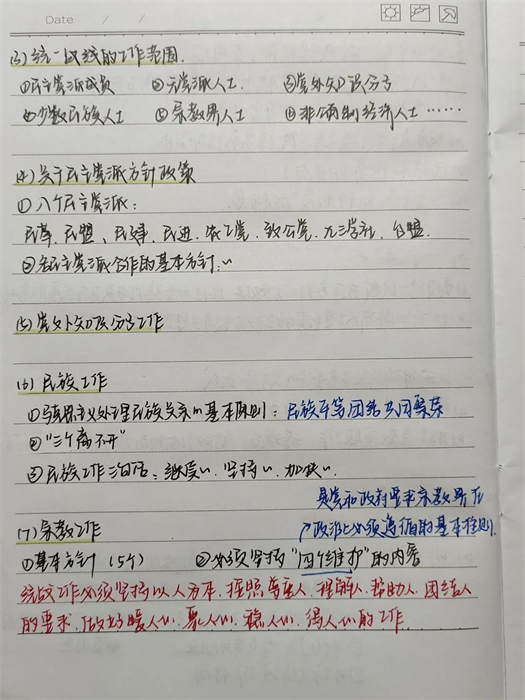 Date / /
(3) 统一战线的工作范围.
①民主党派成员 ②无党派人士. ③党外知识分子
④少数民族人士 ⑤宗教界人士 ⑥非公有制经济人士……
(4) 关于民主党派方针政策
①八个民主党派:
民革、民盟、民建、民进、农工党、致公党、九三学社、台盟.
②与民主党派合作的基本方针:
(5) 党外知识分子工作
(6) 民族工作
①马克思主义处理民族关系的基本原则: 民族平等团结共同繁荣
②“三个离不开”
③民族工作三句话: 继续 坚持 加快
是党和政府要求宗教界在
(7) 宗教工作 政治上必须遵循的基本准则.
①基本方针 (5个) ②必须坚持“四个维护”的内容
统战工作必须坚持以人为本, 按照尊重人. 理解人. 帮助人. 团结人
的要求. 做好暖人心. 聚人心. 稳人心. 得人心的工作.